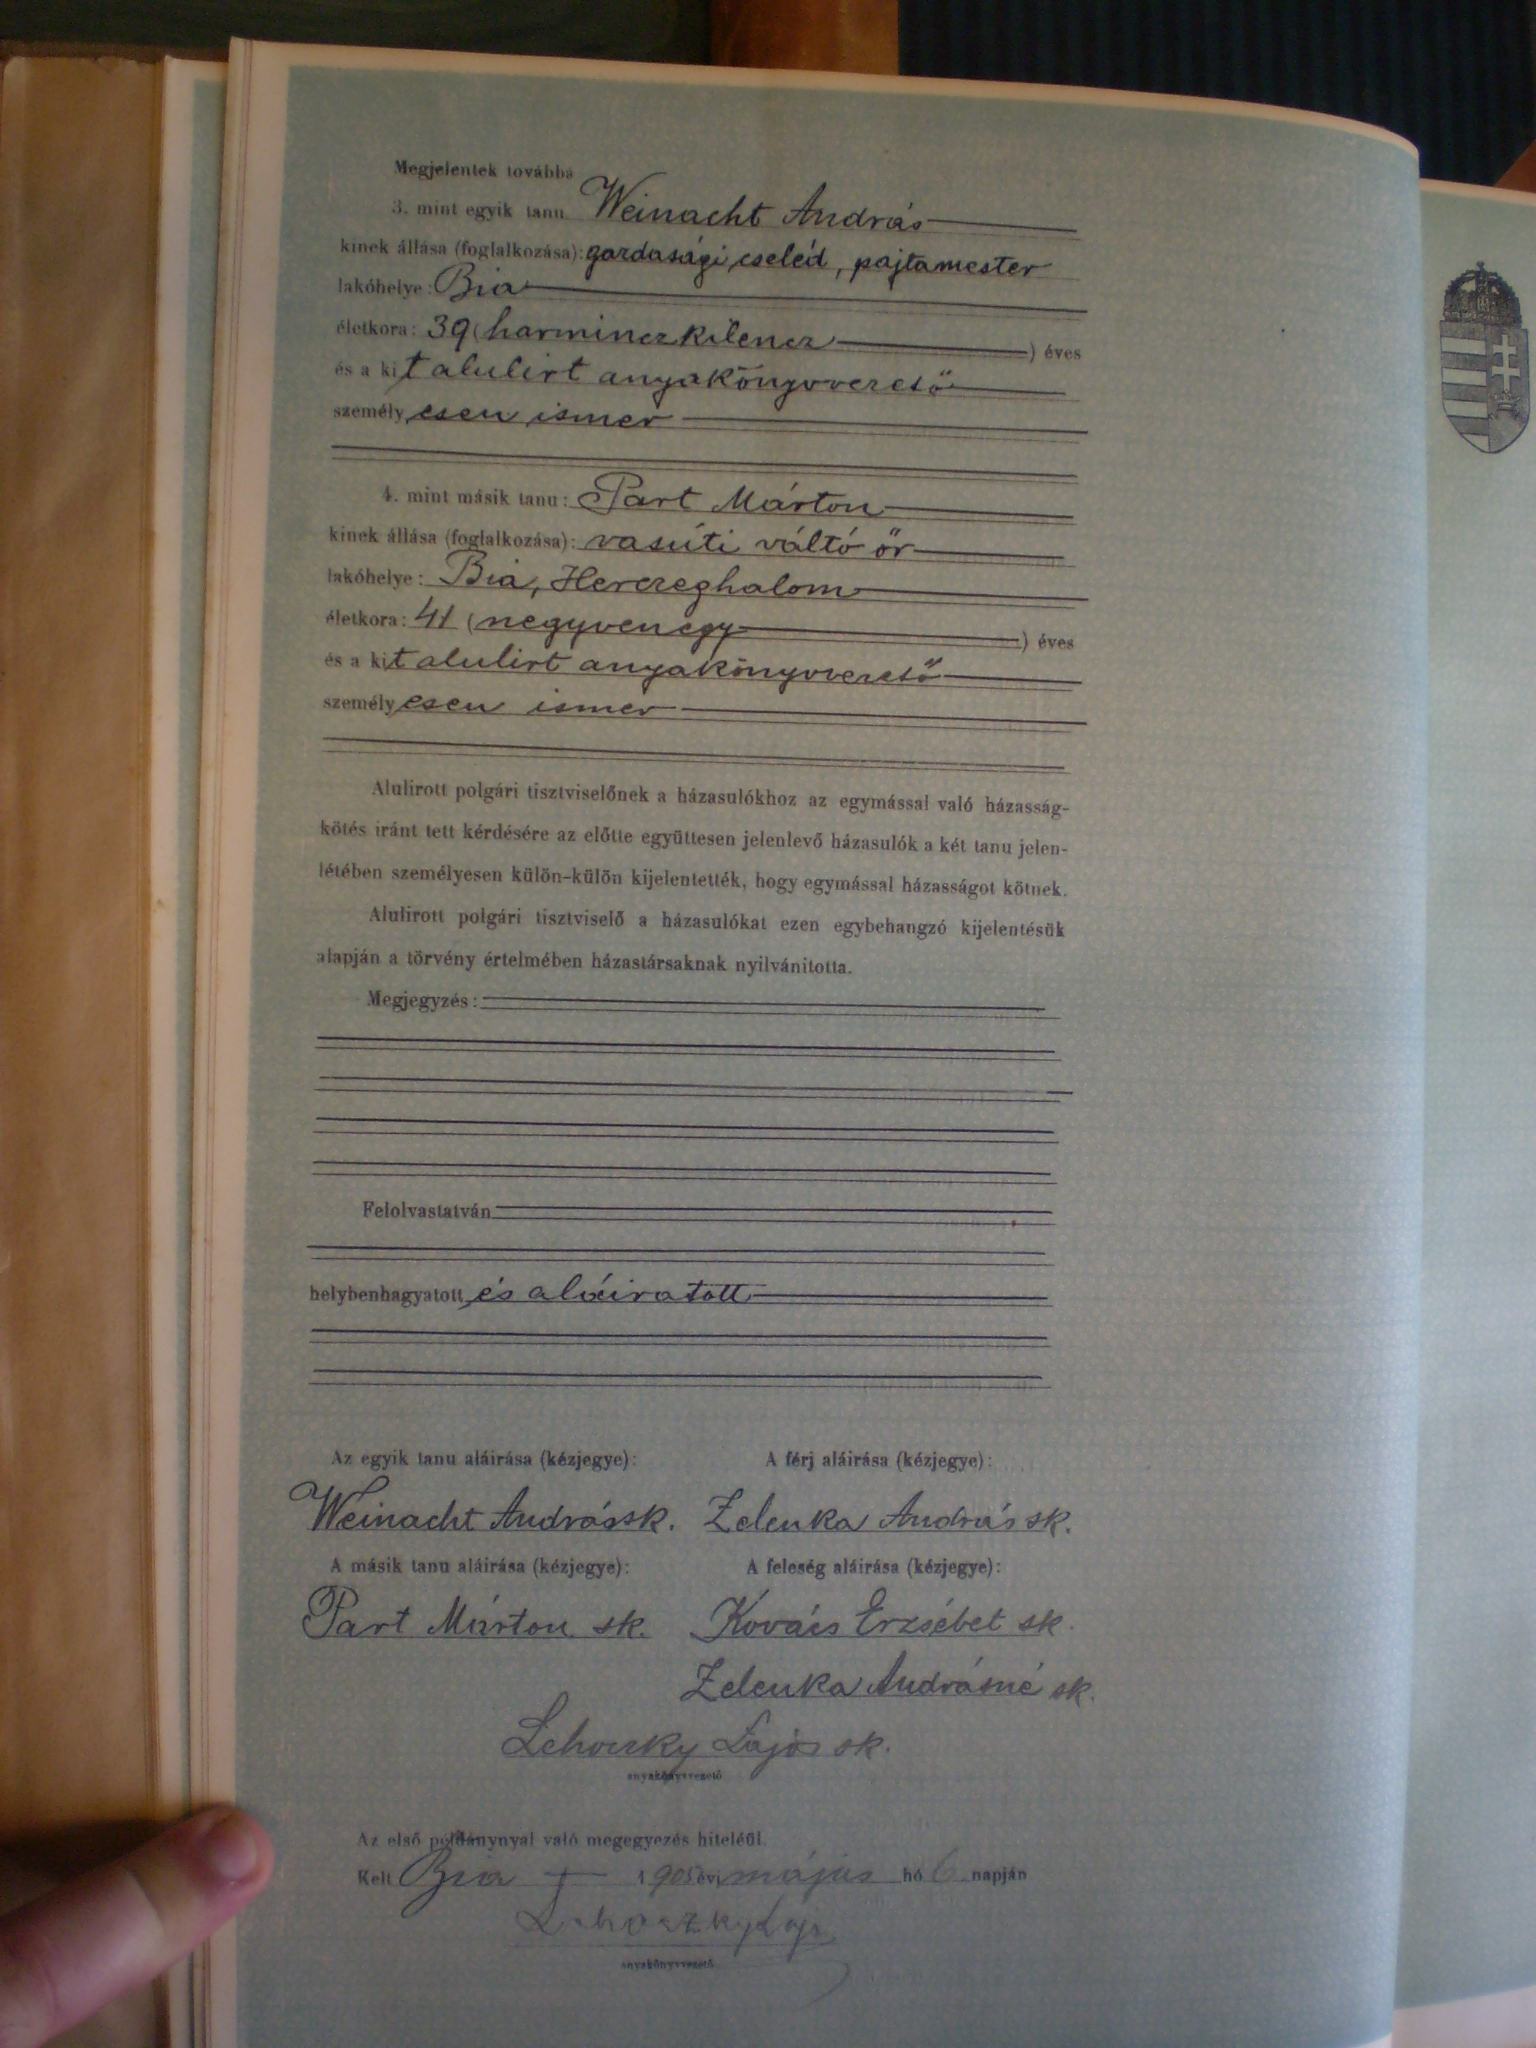 Megjelentek továbbá
3. mint egyik tanu Weinacht András
kinek állása (foglalkozása): gazdasági cseléd, pajtamester
lakóhelye: Bia
életkora: 39 (harmincz kilencz) éves
és a kit alulirt anyakönyvvezető
személyesen ismer
4. mint másik tanu: Part Márton
kinek állása (foglalkozása): vasúti váltó őr
lakóhelye: Bia, Herczeghalom
életkora: 41 (negyvenegy) éves
és a kit alulirt anyakönyvvezető
személyesen ismer
Alulirott polgári tisztviselőnek a házasulókhoz az egymással való házasság-
kötés iránt tett kérdésére az előtte együttesen jelenlevő házasulók a két tanu jelen-
létében személyesen külön-külön kijelentették, hogy egymással házasságot kötnek.
Alulirott polgári tisztviselő a házasulókat ezen egybehangzó kijelentésük
alapján a törvény értelmében házastársaknak nyilvánitotta.
Megjegyzés:
Felolvastatván
helybenhagyatott és aláiratott
Az egyik tanu aláirása (kézjegye): A férj aláirása (kézjegye):
Weinacht András sk. Zelenka András sk.
A másik tanu aláirása (kézjegye): A feleség aláirása (kézjegye):
Part Márton sk. Kovács Erzsébet sk.
Zelenka Andrásné sk.
Lehoczky Lajos sk.
anyakönyvvezető
Az első példánynyal való megegyezés hiteléül.
Kelt Bia 1905 évi május hó 6 napján
Lehoczky Lajos
anyakönyvvezető